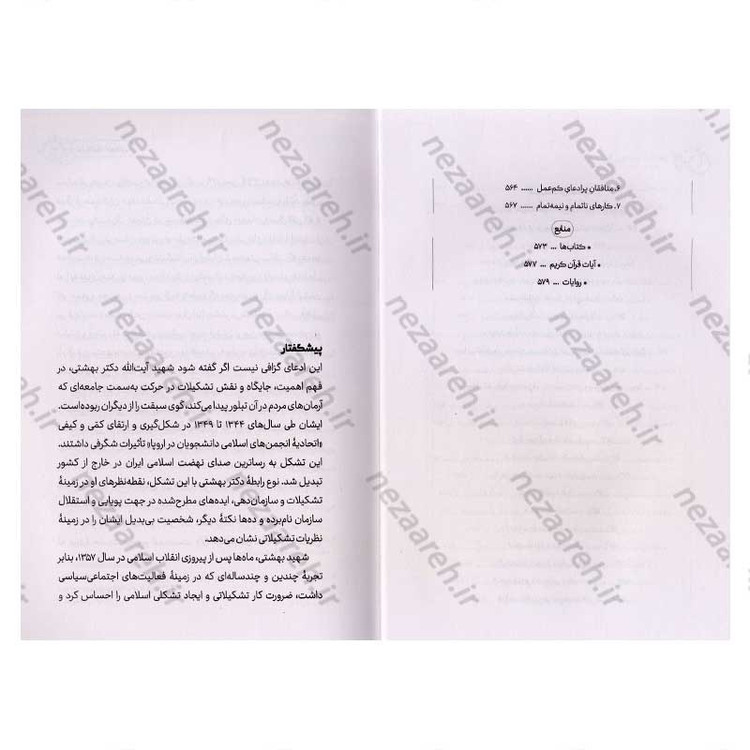 ۶. منافقان پرادعای کم‌عمل ...... ۵۶۴
۷. کارهای ناتمام و نیمه‌تمام ...... ۵۶۷
منابع
• کتاب‌ها ... ۵۷۳
• آیات قرآن کریم ... ۵۷۷
• روایات ... ۵۷۹
پیشگفتار
این ادعای گزافی نیست اگر گفته شود شهید آیت‌الله دکتر بهشتی، در
فهم اهمیت، جایگاه و نقش تشکیلات در حرکت به‌سمت جامعه‌ای که
آرمان‌های مردم در آن تبلور پیدا می‌کند، گوی سبقت را از دیگران ربوده‌است.
ایشان طی سال‌های ۱۳۴۴ تا ۱۳۴۹ در شکل‌گیری و ارتقای کمّی و کیفی
«اتحادیهٔ انجمن‌های اسلامی دانشجویان در اروپا» تأثیرات شگرفی داشتند.
این تشکل به رساترین صدای نهضت اسلامی ایران در خارج از کشور
تبدیل شد. نوع رابطهٔ دکتر بهشتی با این تشکل، نقطه‌نظرهای او در زمینهٔ
تشکیلات و سازمان‌دهی، ایده‌های مطرح‌شده در جهت پویایی و استقلال
سازمان نام‌برده و ده‌ها نکتهٔ دیگر، شخصیت بی‌بدیل ایشان را در زمینهٔ
نظریات تشکیلاتی نشان می‌دهد.
شهید بهشتی، ماه‌ها پس از پیروزی انقلاب اسلامی در سال ۱۳۵۷، بنابر
تجربهٔ چندین و چندساله‌ای که در زمینهٔ فعالیت‌های اجتماعی‌سیاسی
داشت، ضرورت کار تشکیلاتی و ایجاد تشکلی اسلامی را احساس کرد و
nezaareh.ir